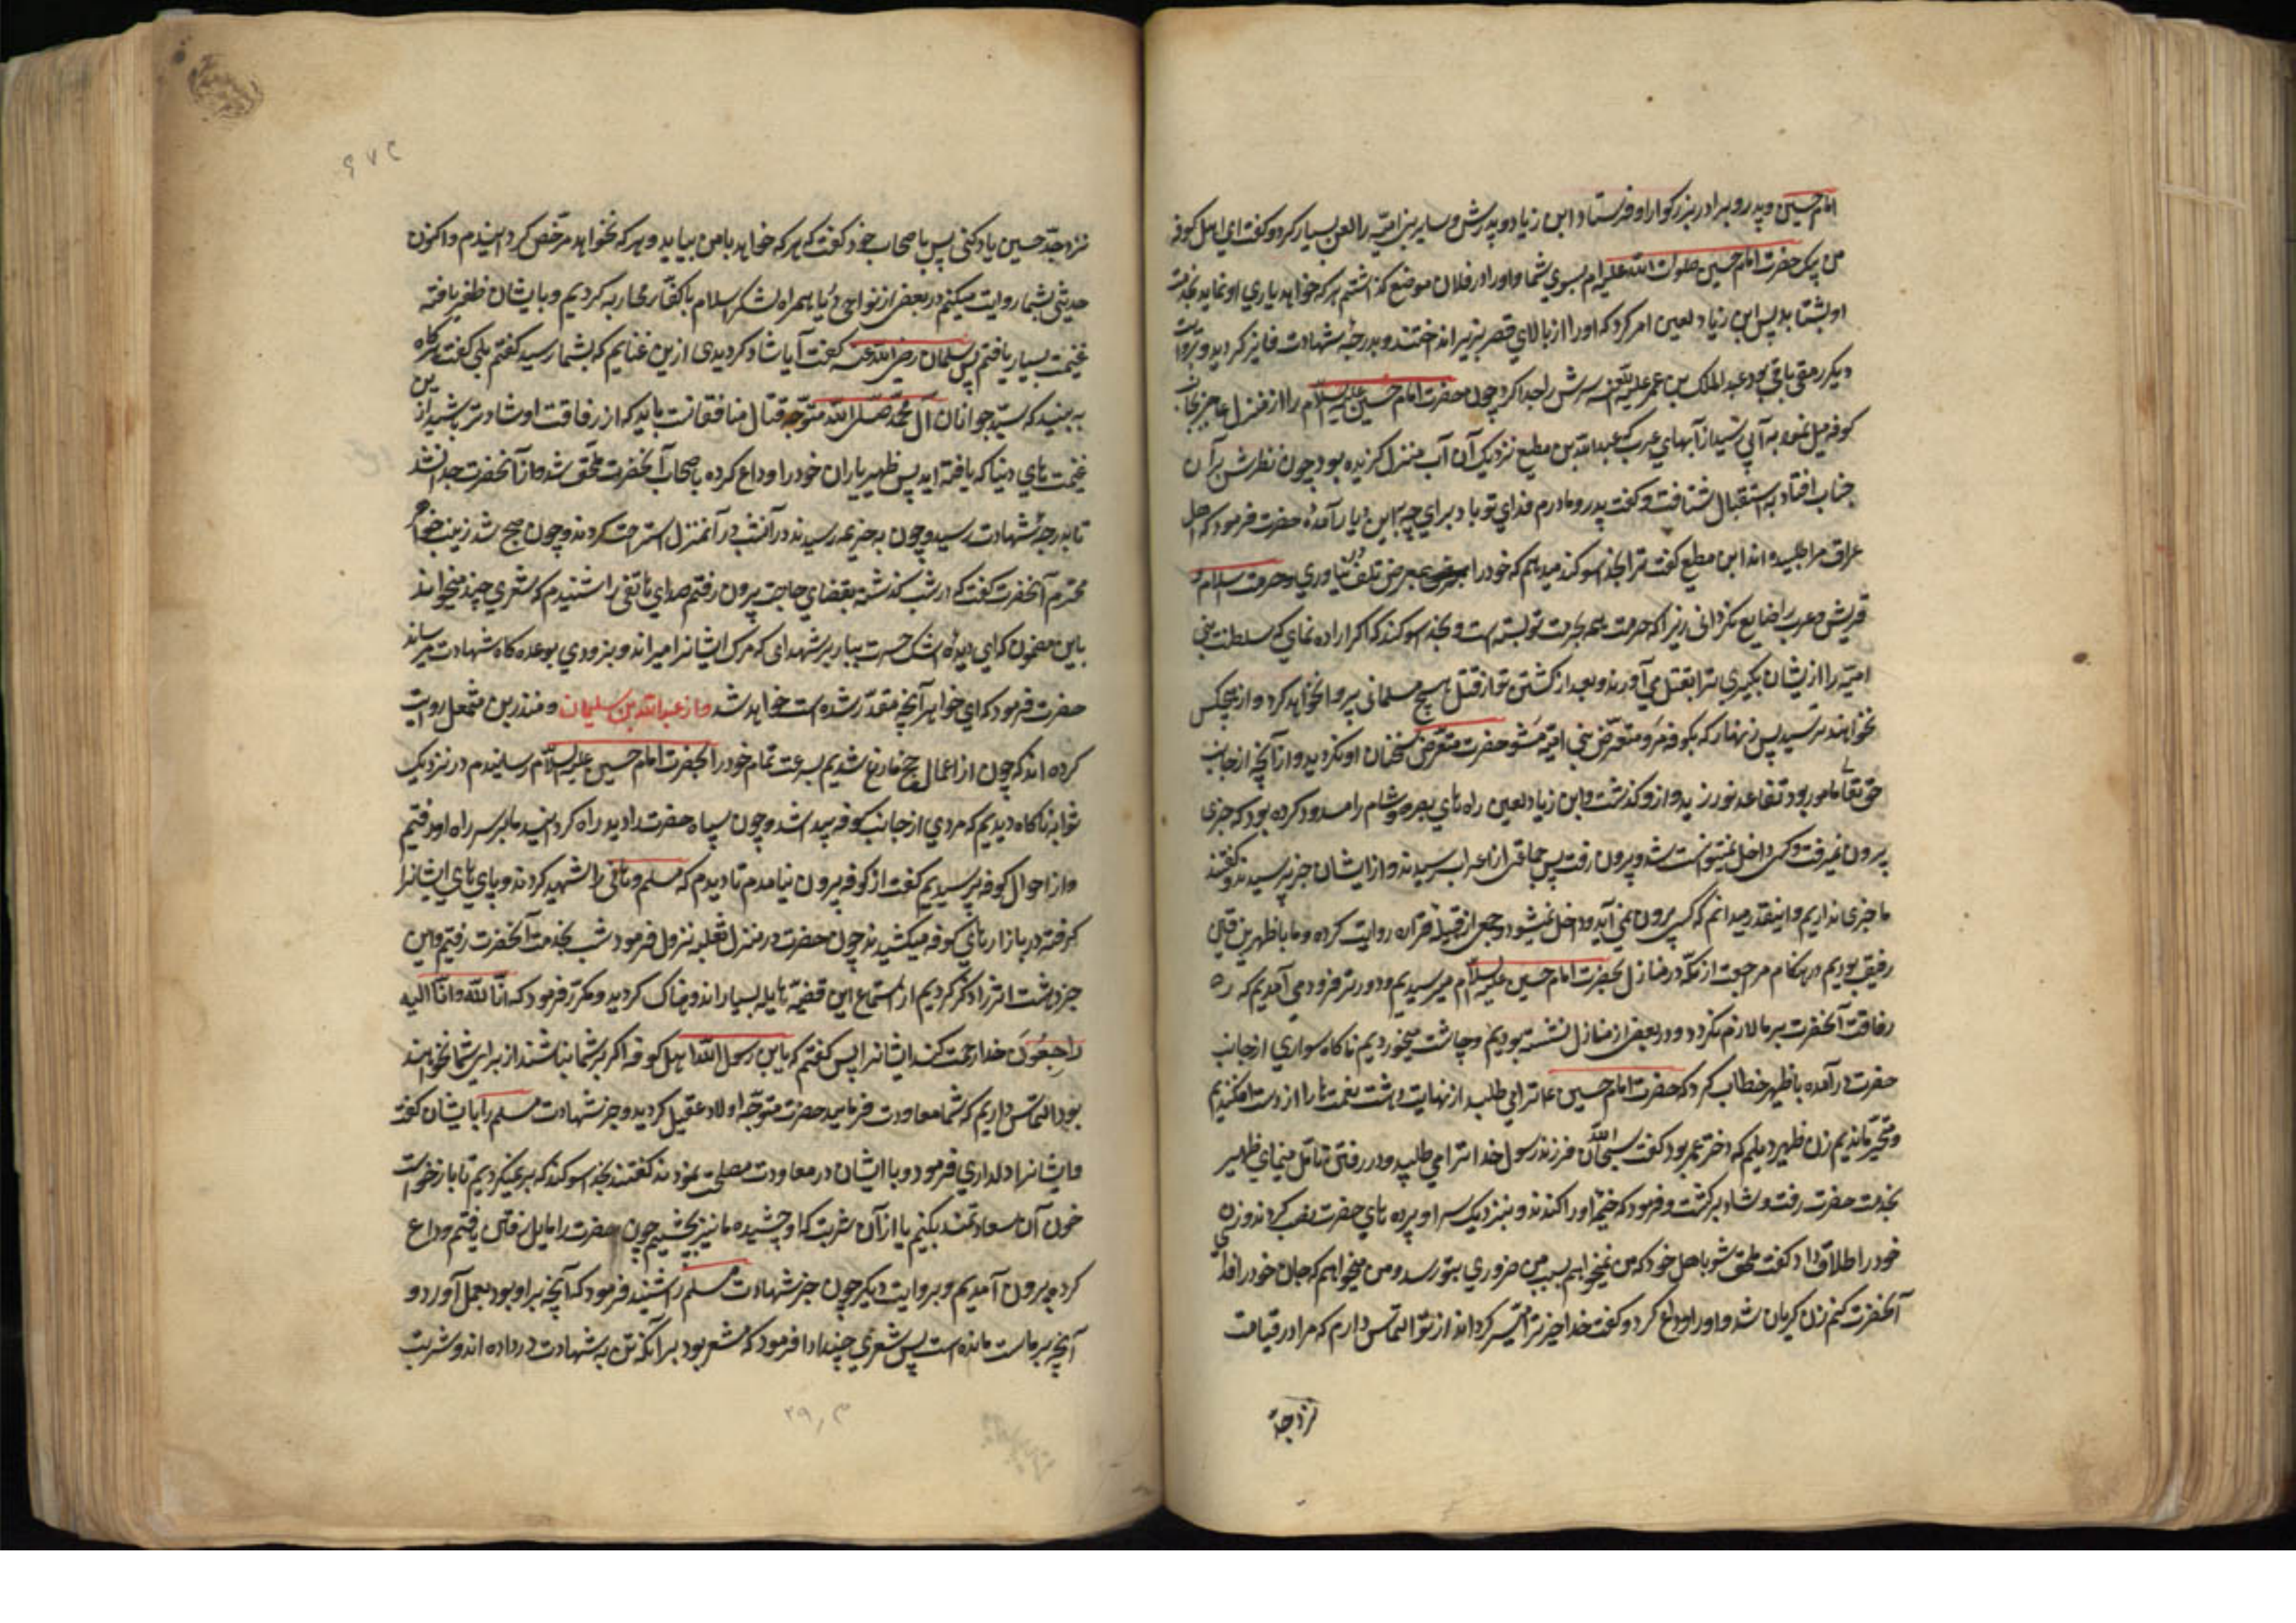 امام حسین و پدر و برادر بزرگوار او فرستاد و ابن زیاد و پدرش و سایر بنی امیه را لعن بسیار کرد و گفت ای اهل کوفه
من پیک حضرت امام حسین صلوات الله علیه ام بسوی شما و او را در فلان موضع گذاشتم هر که خواهد یاری او نماید بخدمت
او بشتابد پس ابن زیاد لعین امر کرد که او را از بالای قصر بزیر انداختند و بدرجه شهادت فایز گردید و بروایت
دیگر رمقی باقی بود عبد الملک بن عمر علیه اللعنه سرش را جدا کرد چون حضرت امام حسین علیه السلام را از منزل حاجر بجانب
کوفه میل نمود به آبی رسید از آبهای عرب که عبد الله بن مطیع نزدیک آن آب منزل گزیده بود چون نظرش بر آن
جناب افتاد به استقبال شتافت و گفت پدر و مادرم فدای تو باد برای چه باین دیار آمده حضرت فرمود که اهل
عراق مرا طلبیده اند ابن مطیع گفت ترا بخدا سوکند میدهم که خود را بمعرض تلف در نیاوری و حرمت اسلام و
قریش و عرب را ضایع نگردانی زیرا که حرمت همه بحرمت تو بسته است و بخدا سوکند که اگر اراده نمای که سلطنت بنی
امیه را از ایشان بگیری ترا بقتل می آورند و بعد از کشتن تو از قتل هیچ مسلمانی پروا نخواهند کرد و از هیچکس
نخواهند ترسید پس زنهار که بکوفه مرو و متعرض بنی امیه مشو حضرت متعرض سخنان او نگردید و از آنچه از جانب
حق تعالی مامور بود تقاعد نورزید و از او گذشت و ابن زیاد لعین راه های بصره و شام را مسدود کرده بود که خبری
بیرون نمیرفت و کسی داخل نمیتوانست شد و بیرون رفت پس جماعتی از اعراب رسیدند و از ایشان خبر پرسیدند گفتند
ما خبری نداریم و اینقدر میدانیم که کسی بیرون نمی آید و داخل نمیشود و جمعی از قبیله فزاره روایت کرده و ما با ظهیر بن قین
رفیق بودیم در هنگام مراجعت از مکه و در منازل بحضرت امام حسین علیه السلام میرسیدیم و دورتر فرود می آمدیم که
رفاقت آنحضرت بر ما لازم نگردد و در بعضی از منازل نشسته بودیم و چاشت میخوردیم ناگاه سواری از جانب
حضرت در آمده با ظهیر خطاب کرد که حضرت امام حسین ع ترا می طلبد از نهایت دهشت لقمه ها را از دست افکندیم
و متحیر ماندیم زن ظهیر دیلم که دختر عمر بود گفت سبحان الله فرزند رسول خدا ترا می طلبد و در رفتن تامل مینمای ظهیر
بخدمت حضرت رفت و شاد برگشت و فرمود که خیمه او را کندند و بنزدیک سرا و پرده های حضرت نصب کردند و زن
خود را طلاق داد و گفت ملحق شو باهل خود که من نمیخواهم بسبب من ضرری بتو رسد و من میخواهم که جان خود را فدای
آنحضرت کنم زن گریان شد و او را وداع کرد و گفت خدا خیر ترا میسر گرداند از تو التماس دارم که مرا در قیامت
نزد جد
نزد جد حسین یاد کنی پس با صحاب خود گفت که هر که خواهد با من بیاید و هر که نخواهد مرخص کردانیدم و اکنون
حدیثی بشما روایت میکنم در بعضی از نواحی دریا همراه لشکر اسلام با کفار محاربه کردیم و بایشان ظفر یافته
غنیمت بسیار یافتم پس سلمان رضی الله عنه گفت آیا شاد کردیدی از این غنایم که بشما رسید گفتم بلی گفت هرگاه
به بینید که سید جوانان آل محمد صلی الله متوجه قتال منافقانست باید که از رفاقت او شادتر باشید از این
غنیمت های دنیا که یافته اید پس ظهیر یاران خود را وداع کرده با صحاب آنحضرت ملحق شد و از آنحضرت جدا نشد
تا بدرجه شهادت رسید و چون به خزیمه رسیدند در آنشب در آنمنزل استراحت کردند و چون صبح شد زینب خواهر
محترم آنحضرت گفت که در شب گذشته بقضای حاجت بیرون رفتم صدای هاتفی را شنیدم که شعری چند میخواند
باین مضمون که ای دیده اشک حسرت ببار بر شهدای که مرگ ایشانرا میراند و بزودی بوعده کاه شهادت میرساند
حضرت فرمود که ای خواهر آنچه مقدر شده است خواهد شد و از عبد الله بن سلیمان و منذر بن مشمعل روایت
کرده اند که چون از اعمال حج فارغ شدیم بسرعت تمام خود را بحضرت امام حسین علیه السلام رسانیدیم در نزدیک
ثوابه ناگاه دیدیم که مردی از جانب کوفه پیدا شد و چون سپاه حضرت را دید راه گردانید ما بر سر راه او رفتیم
و از احوال کوفه پرسیدیم گفت از کوفه بیرون نیامدم تا دیدم که مسلم و هانی را شهید کردند و پای های ایشانرا
گرفته در بازارهای کوفه میکشیدند چون حضرت در منزل ثعلبه نزول فرمود شب بخدمت آنحضرت رفتیم و این
خبر دهشت اثر را ذکر کردیم از استماع این قضیه هایله بسیار اندوهناک کردید و مکرر فرمود که انا لله و انا الیه
راجعون خدا رحمت کند ایشانرا پس گفتم که یابن رسول الله اهل کوفه اگر بر شما نباشند از برای شما نخواهند
بود التماس داریم که شما معاودت فرمایید حضرت متوجه اولاد عقیل کردید و خبر شهادت مسلم را بایشان گفت
و ایشانرا دلداری فرمود و با ایشان در معاودت مصلحت نمودند گفتند بخدا سوکند که بر نمیگردیم تا باز خواست
خون آن سعادتمند بکنیم یا از آن شربت که او چشیده ما نیز بچشیم چون حضرت را مایل رفتن یافتم وداع
کرده بیرون آمدیم و بروایت دیگر چون خبر شهادت مسلم را شنید فرمود که آنچه بر او بود بعمل آورد و
آنچه بر ماست مانده است پس شعری چند ادا فرمود که مشعر بود بر آنکه تن به شهادت در داده اند و شربت